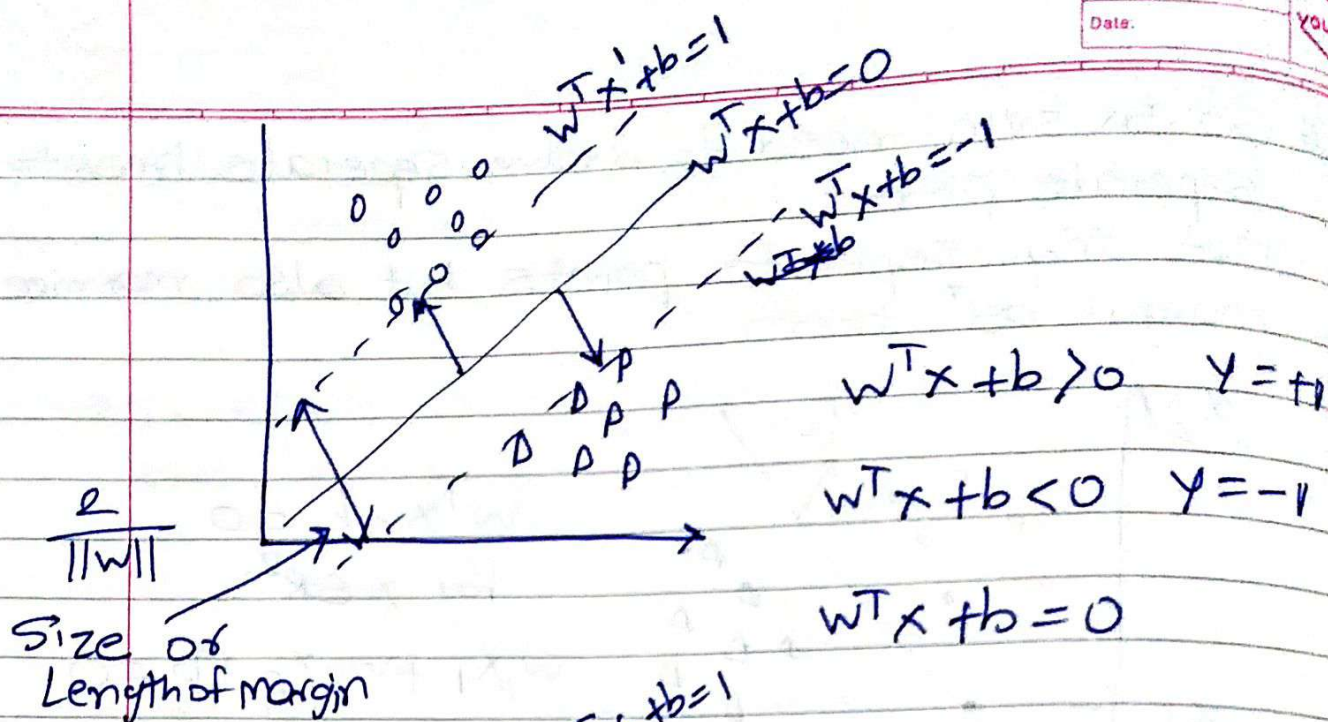 Date:
YOU
w^T x' + b = 1
w^T x + b = 0
w^T x + b = -1
w^T x + b > 0 y = +1
w^T x + b < 0 y = -1
2
||w||
w^T x + b = 0
Size or
Length of margin
x + b = 1